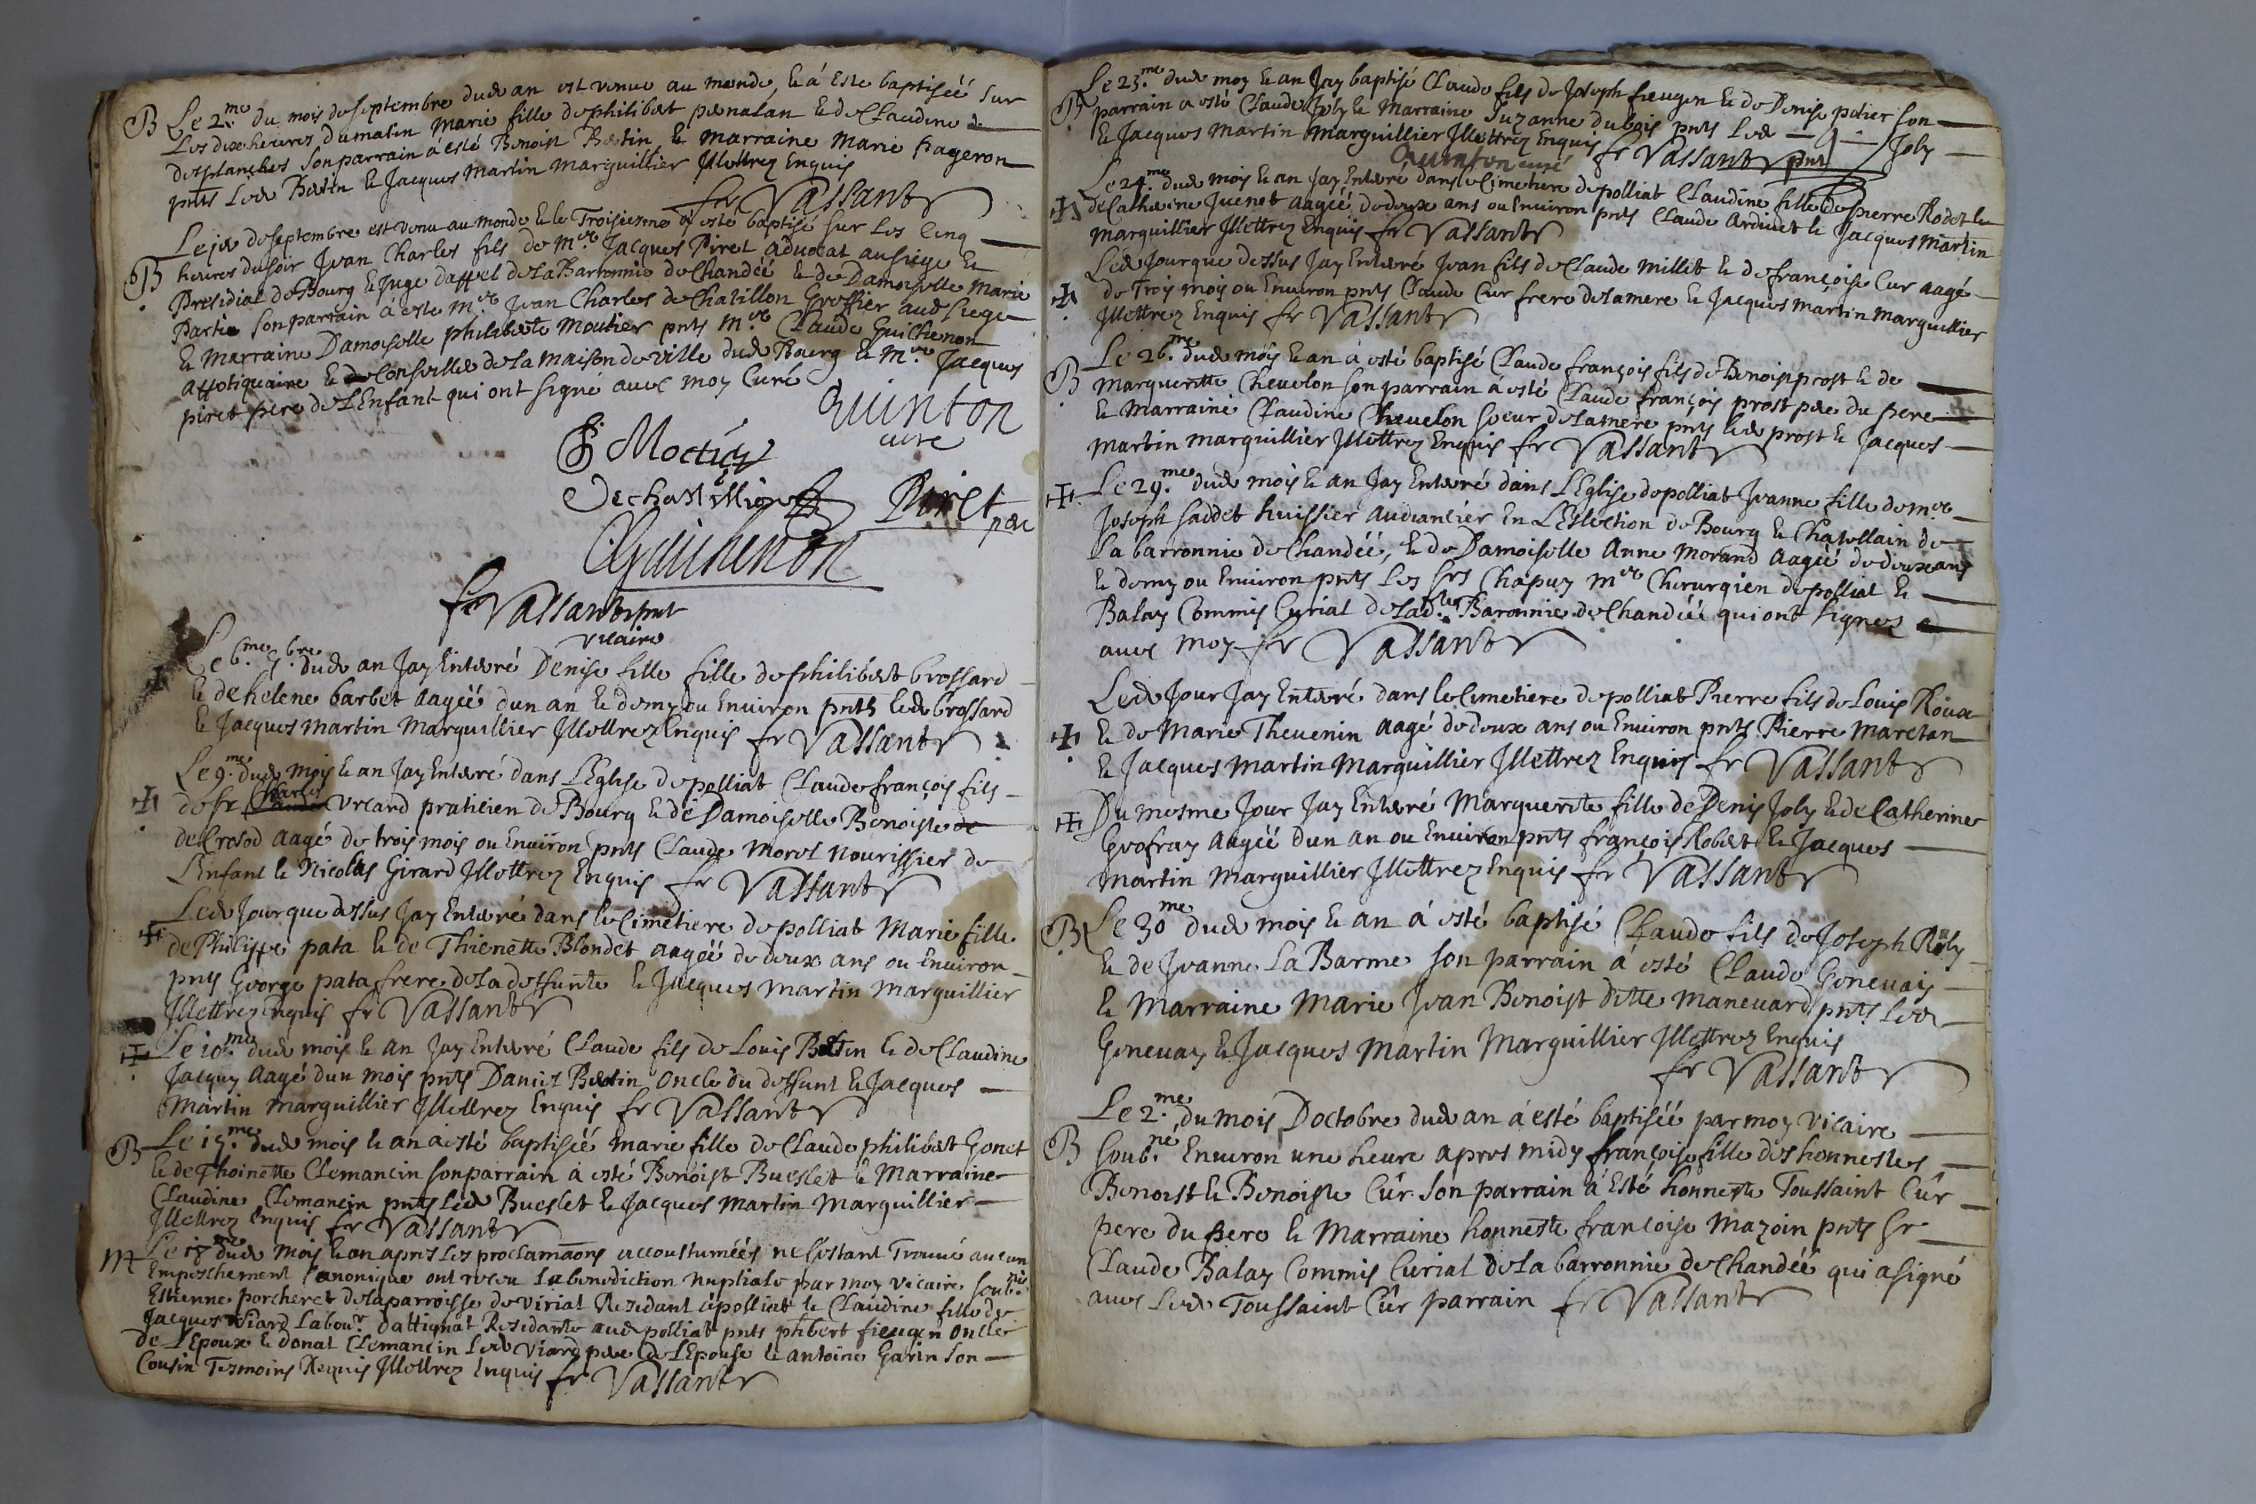 B Le 2.me du mois de septembre dud an est venue au monde, & á Esté baptiséé sur
Les dix heures du matin Marie fille de philibert penalan & de Claudine
desplanches son parrain á esté Benoist Bertin & marraine Marie frageron
pnts Led Bertin & Jacques Martin Marguillier Illettrez Enquis
fr Vassant
Le jer de septembre est venu au monde & le Troisieme á esté baptisé sur Les Cinq
B heures du soir Jean Charles fils de M.re Jacques Piret advocat au siege &
Presidial de Bourg & Juge d'appel de La Baronnie de Chandéé & de Damoiselle Marie
Partie son parrain á esté M.re Jean Charles de Chatillon Greffier aud Siege
& Marraine Damoiselle philiberte Moutier pnts M.re Claude Guichenon
Appotiquaire & Conseiller de La Maison de ville dud Bourg & M.re Jacques
piret pere de L'Enfant qui ont signe avec moy Curé
Quinton
curé
P Moctier
Dechastillion Piret
pere
CGuichenon
fr Vassant pnt
vicaire
Le 6.me 7.bre dud an Jay Enterré Denise fille fille de philibert brossard
& de helene barbet aagéé d'un an & demy ou Environ pnts led brossard
& Jacques Martin Marguillier Illettrez Enquis fr Vassant
Le 9.me dud mois & an Jay Enterré dans L'Eglise de polliat Claude françois fils
de sr Charles Vrcard praticien de Bourg & de Damoiselle Benoiste
de Crosod aagé de trois mois ou Environ pnts Claude Morel nourissier de
L'Enfant & Nicolas Girard Illettrez Enquis fr Vassant
Led Jour que dessus Jay Enterré dans le Cimetiere de polliat Marie fille
de Philippe pata & de Thienette Blondet aagéé de deux ans ou Environ
pnts George pata frere de la deffunte & Jacques Martin Marguillier
Illettrez Enquis fr Vassant
Le 10.me dud mois & an Jay Enterré Claude fils de Louis Bertin & de Claudine
Jacquy aagé d'un mois pnts Daniel Bertin Oncle du deffunt & Jacques
Martin Marguillier Illettrez Enquis fr Vassant
B Le 15.me dud mois & an á esté baptiséé Marie fille de Claude philibert Gonet
& de Thoinette Clemancin son parrain á esté Benoist Bueslet & Marraine
Claudine Clemancin pnts Led Bueslet & Jacques Martin Marguillier
Illettrez Enquis fr Vassant
M Le 18.me dud mois & an apres Les proclamaons accoustuméés ne sestant Trouvé aucun
Empeschement Canonique ont receu La benediction nuptiale par moy vicaire soub.né
Estienne porcheret de la parroisse de viriat Residant á polliat & Claudine fille de
Jacques Viard Labour.r d'attignat Residante aud polliat pnts phibert fieugen oncle
de L'Epoux & donat Clemancin Led Viard pere de L'Epouse & antoine Garin son
Cousin Tesmoins Requis Illettrez Enquis fr Vassant
Le 23.me dud moy & an Jay baptisé Claude fils de Joseph fieugen & de Denise potier son
B parrain a esté Claude Joly & Marraine Suzanne dubois pnts Led Joly
& Jacques Martin Marguillier Illettrez Enquis fr Vassant pnt
Quinton curé
Le 24.me dud mois & an Jay Enterré dans le Cimetiere de polliat Claudine fille de pierre Rodet &
de Catherine Juenet aagéé de deux ans ou Environ pnts Claude Ardudet & Jacques Martin
Marguillier Illettrez Enquis fr Vassant
Led Jour que dessus Jay Enterré Jean fils de Claude Millet & de françoise Cur aagé
de Trois mois ou Environ pnts Claude Cur frere de la mere & Jacques Martin Marguillier
Illettrez Enquis fr Vassant
Le 26.me dud mois & an á esté baptisé Claude françois fils de Benoist prost & de
B Marguerite Chevelon son parrain á esté Claude françois prost pere du pere
& Marraine Claudine Chevelon soeur de la mere pnts led prost & Jacques
Martin Marguillier Illettrez Enquis fr Vassant
Le 29.me dud mois & an Jay Enterré dans L'Eglise de polliat Jeanne fille de M.re
Joseph saddet huissier audiancier En L'Eslection de Bourg & Chatellain de
La barronnie de Chandéé, & de Damoiselle Anne Morand aagéé de deux ans
& demy ou Environ pnts Les srs Chapuy M.re Chirurgien de polliat &
Balay Commis Curial de Lad.te Baronnie de Chandéé qui ont signez
avec moy fr Vassant
Led Jour Jay Enterré dans le Cimetiere de polliat Pierre fils de Louis Roux
& de Marie Thevenin aagé de deux ans ou Environ pnts Pierre Maretan
& Jacques Martin Marguillier Illettrez Enquis fr Vassant
Du mesme Jour Jay Enterré Marguerite fille de Denis Joly & de Catherine
Geofray aagéé d'un an ou Environ pnts françois Robert & Jacques
Martin Marguillier Illettrez Enquis fr Vassant
B Le 30.me dud mois & an á esté baptisé Claude fils de Joseph Roly
& de Jeanne La Barme son parrain á esté Claude Genevais
& Marraine Marie Jean Benoist ditte Manevard pnts Led
Genevay & Jacques Martin Marguillier Illettrez Enquis
fr Vassant
Le 2.me du mois D'octobre dud an á esté baptiséé par moy Vicaire
B soub.né Environ une heure apres midy françoise fille des honnestes
Benoist & Benoiste Cûr son parrain á Esté honneste Toussaint Cûr
pere du pere & Marraine honneste françoise Mazoin pnts sr
Claude Balay Commis Curial de La barronnie de Chandéé qui a signé
avec Led Toussaint Cûr parrain fr Vassant